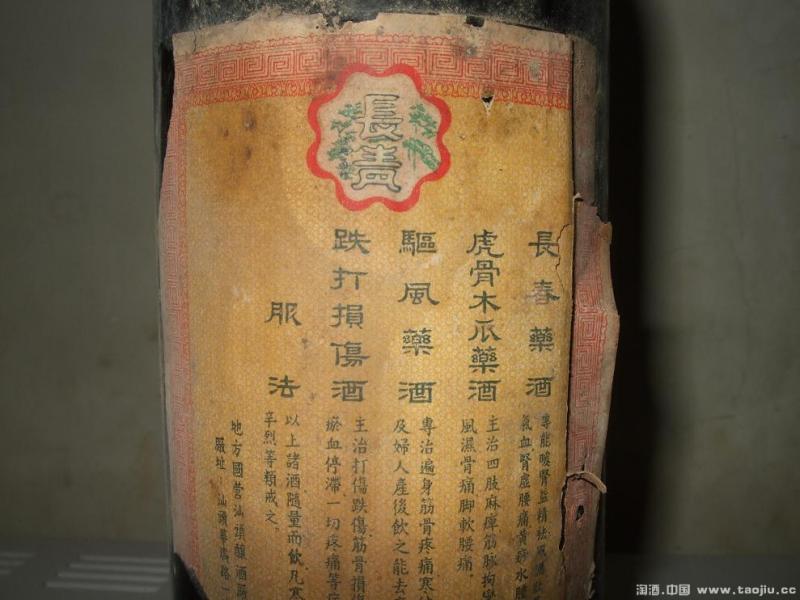 長青
長春藥酒
專能暖腎益精祛風
氣血腎虛腰痛黃疹水腫
虎骨木瓜藥酒
主治四肢麻痺筋脉拘
風濕骨痛脚軟腰痛
驅風藥酒
專治遍身筋骨疼痛寒
及婦人產後飲之能去
跌打損傷酒
主治打傷跌傷筋骨損
瘀血停滯一切疼痛等
服法
以上諸酒隨量而飲凡寒
辛烈等類戒之。
地方國營汕頭釀酒
廠址：汕頭
淘酒.中国 www.taojiu.cc